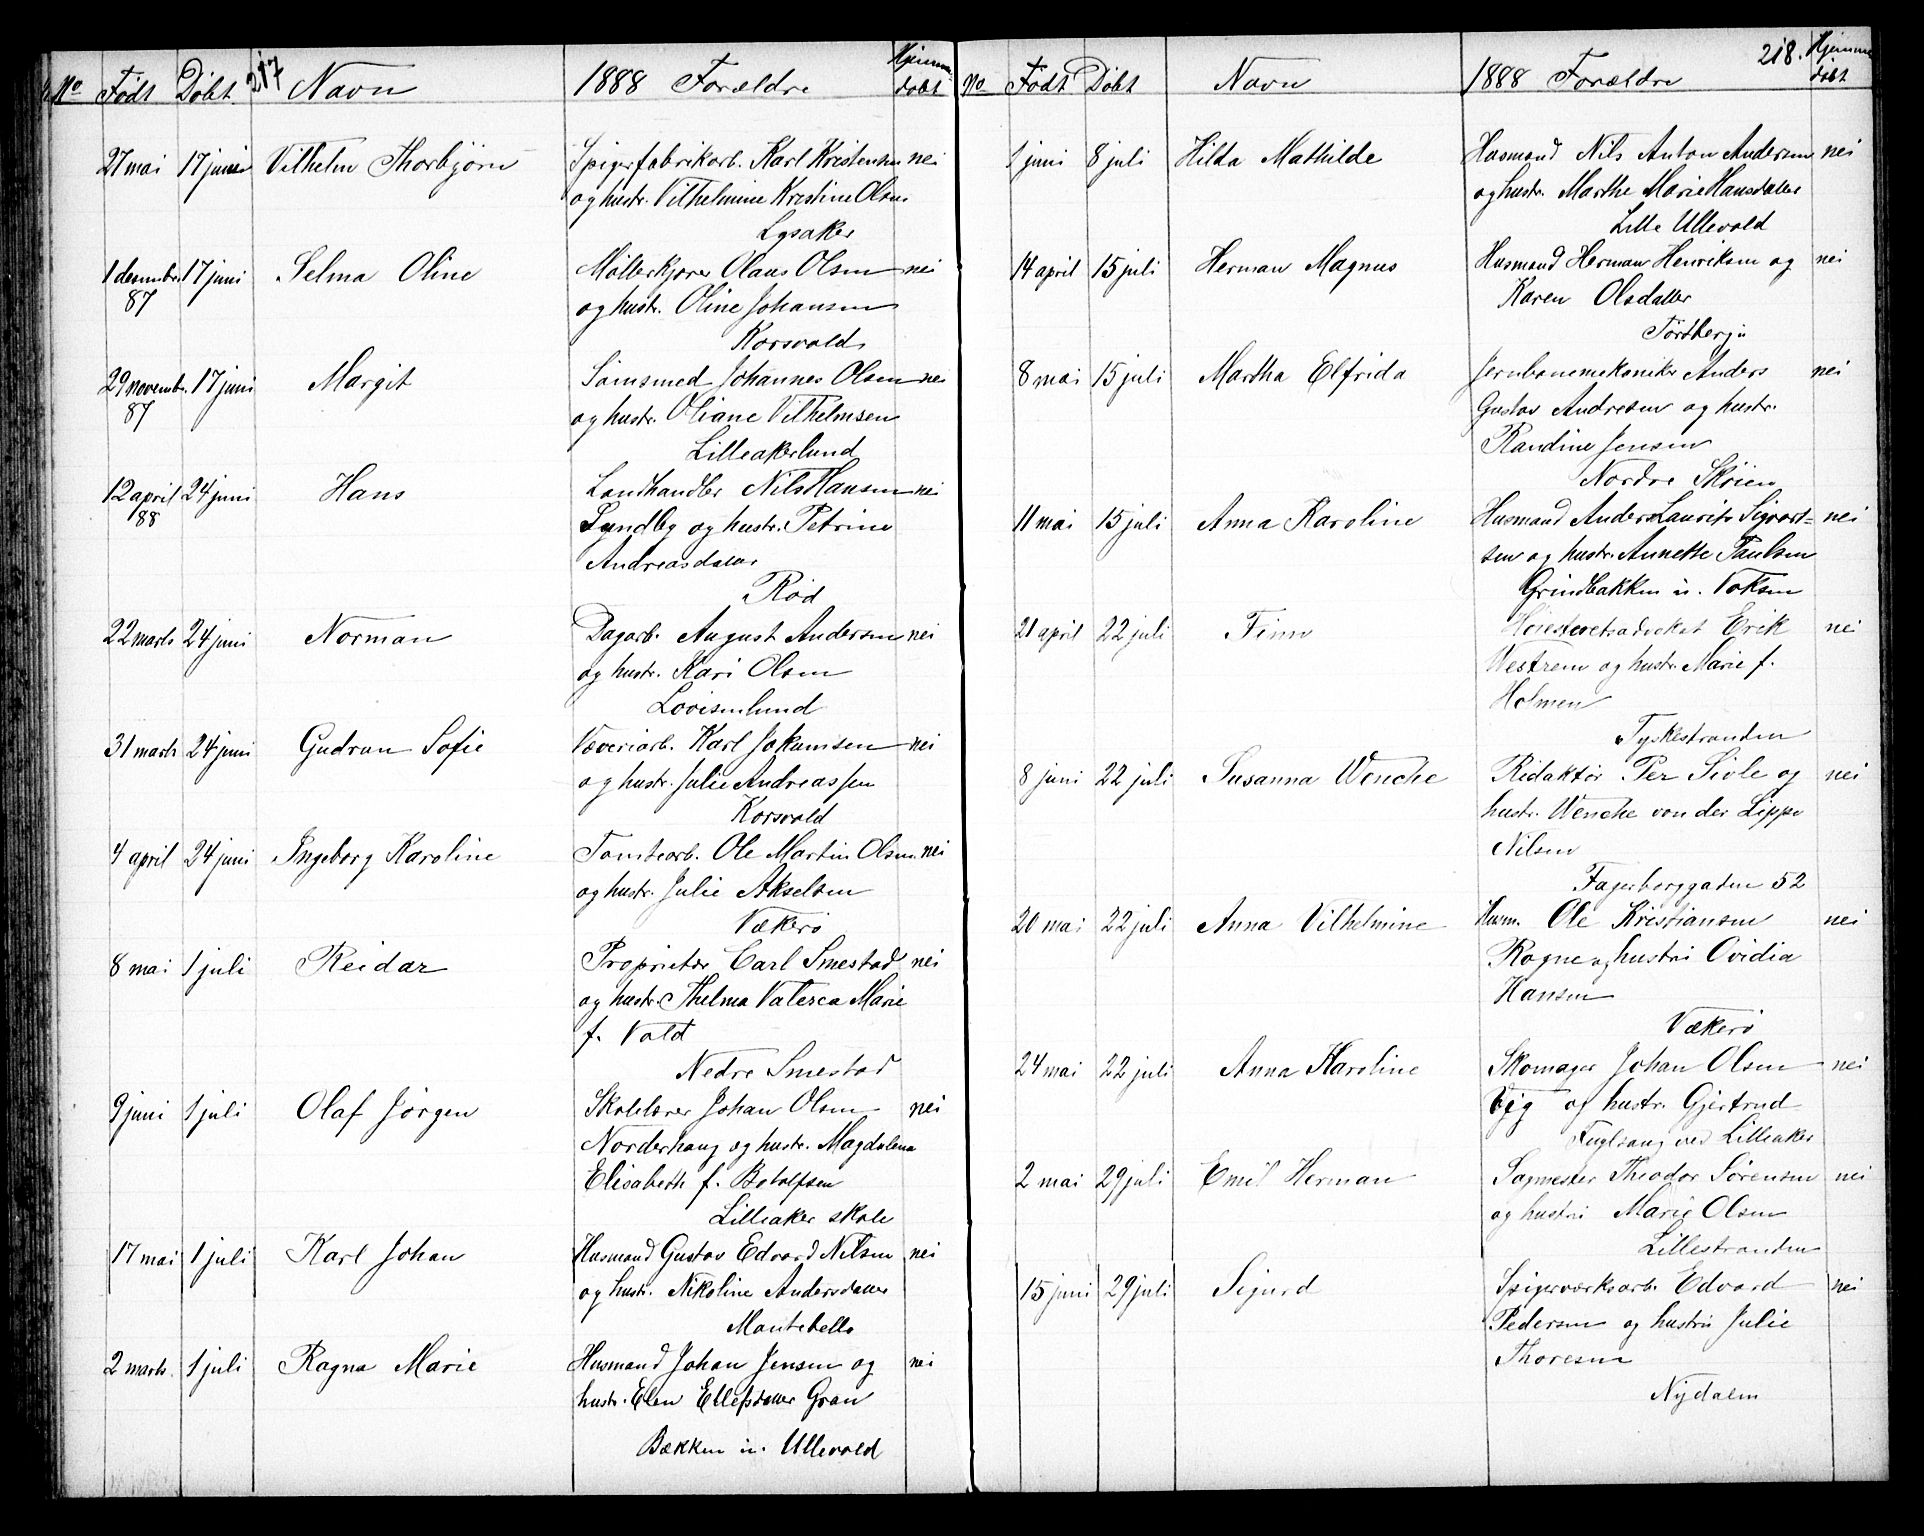 No Født Døbt 217 Navn 1888 Forældre Hjemmedøbt
27 mai 17 juni Vilhelm Thorbjørn Spigerfabrikarb. Karl Kristensen nei
og hustr. Vilhelmine Kristine Olsen
Lysaker
1 desember 17 juni Selma Oline Møllerkjører Olaus Olsen nei
87 og hustr. Oline Johansen
Korsvold
29 novembr. 17 juni Margit Johannes Olsen nei
87 og hustr. Oliane Vilhelmsen
Lilleakerlund
12 april 24 juni Hans Landhandler Nils Hansen nei
88 Lundby og hustr. Petrine
Andreasdatter
Rød
22 marts 24 juni Norman Dagarb. August Andersen nei
og hustr. Kari Olsen
Lovisenlund
31 marts 24 juni Gudrun Sofie Væveriarb. Karl Jokumsen nei
og hustr. Julie Andreassen
Korsvold
4 april 24 juni Ingeborg Karoline Tomtearb. Ole Martin Olsen nei
og hustr. Julie Akselsen
Vækerø
8 mai 1 juli Reidar Proprietær Carl Smestad nei
og hustr. Thelma Valesca Marie
f. Vold
Nedre Smestad
9 juni 1 juli Olaf Jørgen Skolelærer Johan Olsen nei
Norderhaug og hustr. Magdalena
Elisabeth f. Botolfsen
Lilleaker skole
17 mai 1 juli Karl Johan Husmand Gustav Edvard Nilsen nei
og hustr. Nikoline Andersdatter
Montebello
2 marts. 1 juli Ragna Marie Husmand Johan Jensen og nei
hustr. Elen Ellefsdatter Gran
Bækken u. Ullevold
No Født Døbt Navn 1888 Forældre 218. Hjemmedøbt
1 juni 8 juli Hilda Mathilde Husmand Nils Anton Andersen nei
og hustr. Marthe Marie Hansdatter
Lille Ullevold
14 april 15 juli Herman Magnus Husmand Herman Henriksen og nei
Karen Olsdatter
8 mai 15 juli Martha Elfrida Jernbanemekaniker Anders nei
Gustav Andresen og hustr.
Randine Jensen
Nordre Skøien
11 mai 15 juli Anna Karoline Husmand Anders Laurits Sigvart= nei
sen og hustr. Annette Paulsen
Grindbakken u. Voksen
21 april 22 juli Finn Høiesteretsadvokat Erik nei
Westrem og hustr. Marie f.
Holmen
Tyskestranden
8 juni 22 juli Susanna Wenche Redaktør Per Sivle og nei
hustr. Wenche von der Lippe
Nilsen
Fagerborggaden 52
20 mai 22 juli Anna Vilhelmine Husm. Ole Kristiansen nei
Rogne og hustri Ovidia
Hansen
Vækerø
24 mai 22 juli Anna Karoline Skomager Johan Olsen nei
of hustr. Gjertrud
Fuglsang ved Lilleaker
2 mai 29 juli Emil Herman Sagmester Theodor Sørensen nei
og hustri Marie Olsen
Lillestranden
15 juni 29 juli Sigurd Spigerværksarb. Edvard nei
Pedersen og hustri Julie
Thoresen
Nydalen